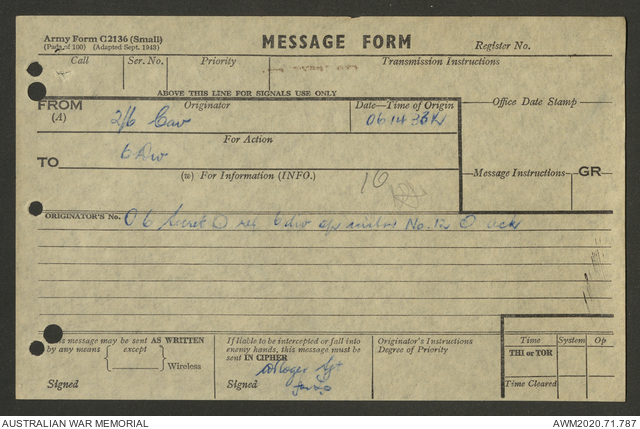 Army Form C2136 (Small)
(Pads of 100) (Adapted Sept. 1943)
MESSAGE FORM
Register No.
Call
Ser. No.
Priority
Transmission Instructions
ABOVE THIS LINE FOR SIGNALS USE ONLY
FROM
(A)
Originator
2/6 Cav
Date—Time of Origin
Office Date Stamp
For Action
TO
6 Div
(w) For Information (INFO.)
Message Instructions
GR
ORIGINATOR'S No.
O 6 Secret O ref 6 div No. 12 O ack
This message may be sent AS WRITTEN
by any means
except
Wireless
Signed
If liable to be intercepted or fall into
enemy hands, this message must be
sent IN CIPHER
Signed
Originator's Instructions
Degree of Priority
Time
System
Op
THI or TOR
Time Cleared
AUSTRALIAN WAR MEMORIAL
AWM2020.71.787